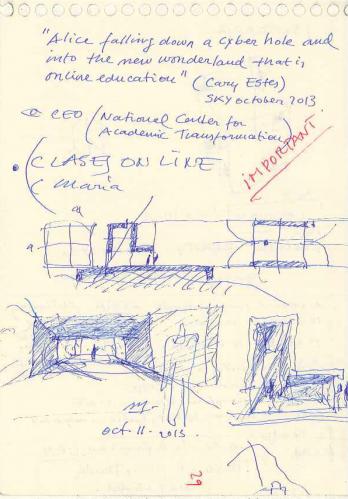 "Alice falling down a cyber hole and
into the new wonderland that is
online education" (Cary Estes)
SKY october 2013
CEO (National Center for
Academic Transformation)
IMPORTANT
CLASES ON LINE
Maria
oct. 11 - 2013.
29